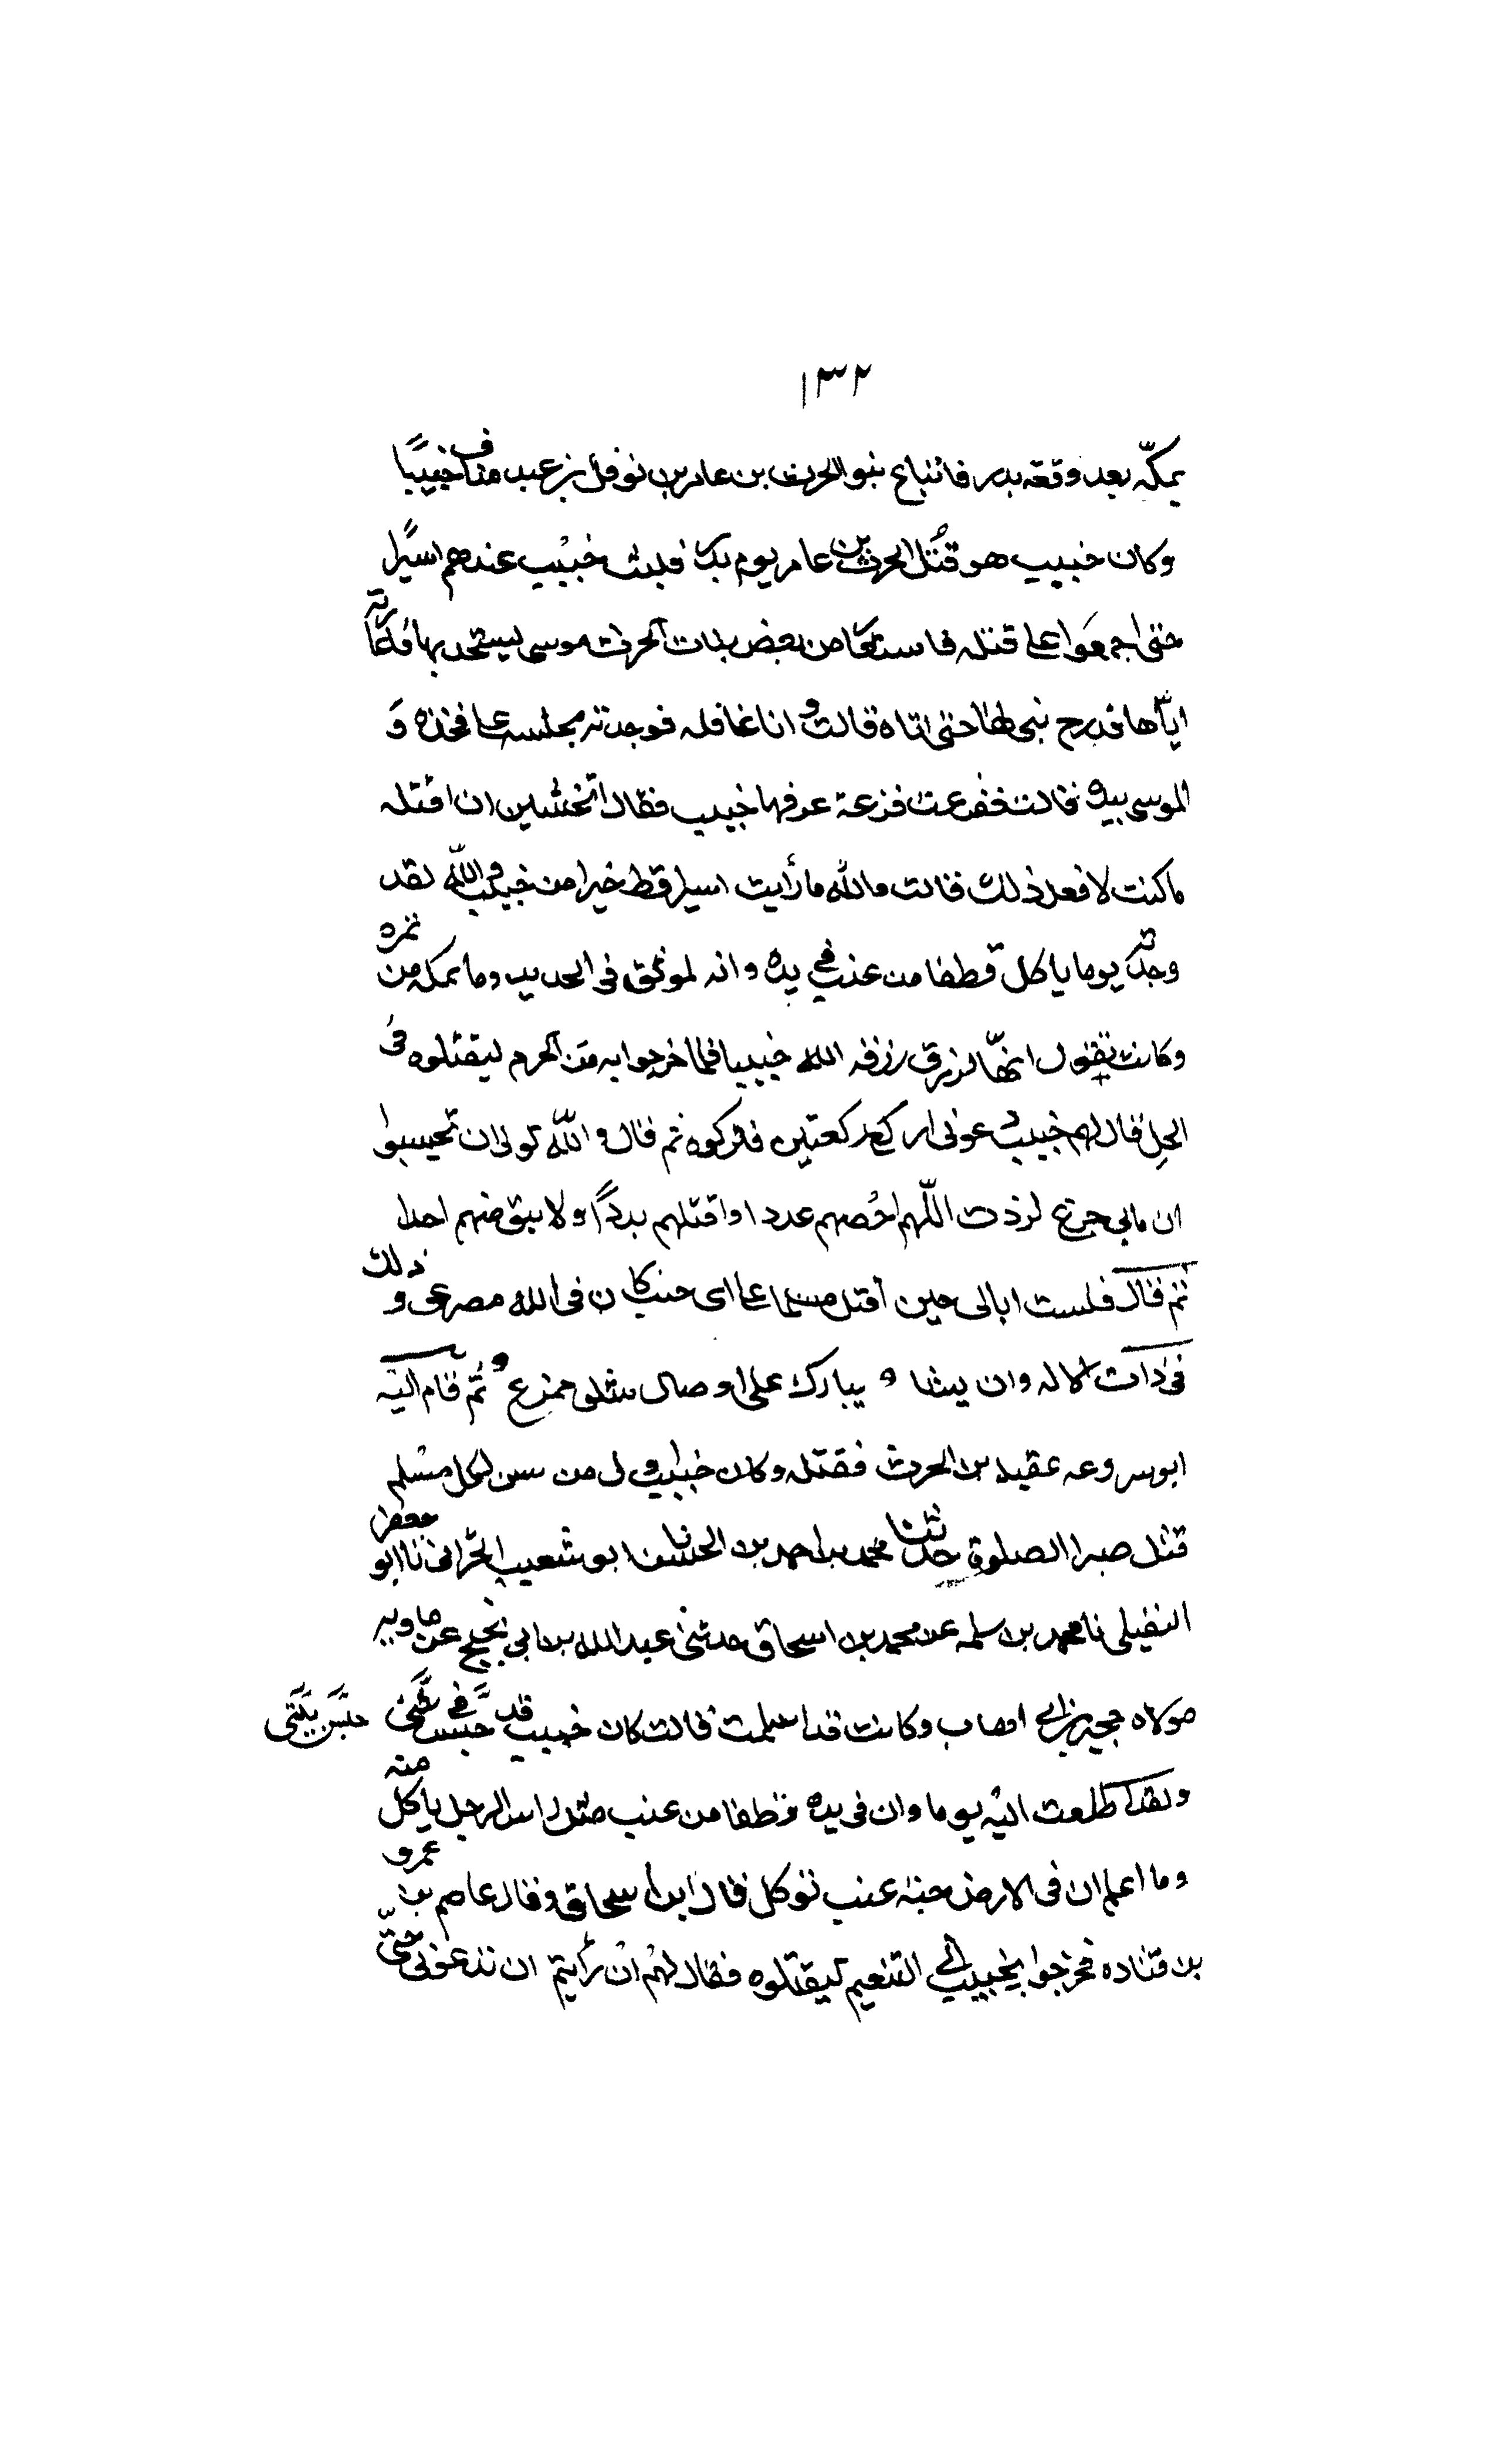 ١٣٢
بمكّه بعد وقعة بدر فابتاع بنو الحرث بن عامر بن نوفل بن عبد مناف خبيبًا
وكان خبيب هو قتل الحرث بن عامر يوم بدر فلبث خبيب عندهم اسيرًا
حتى اجمعوا على قتله فاستعا من بعض بنات الحرث موسى ليستحد بها فاعارته
ايّاها فدرج بنى لها حتى اتاه قالت وانا غافله فوجدته مجلسه على فخذه وَ
الموسى بيده فقالت ففزعت فزعة عرفها خبيب فقال اتخشين ان اقتله
ما كنت لافعل ذلك فقالت والله ما رأيت اسيرا قط خيرا من خبيب والله لقد
وجدته يوما ياكل قطفا من عنب في يده وانه لموثق فى الحديد وما بمكه من تمره
وكانت تقول انهّا لرزق رزقه الله خبيبا فلما خرجوا به من الحرم ليقتلوه فى
الحل قال لهم خبيب دعونى اركع ركعتين فتركوه ثم قال والله لولا ان تحسبوا
ان مابى جزع لزدت اللّهم احصهم عددا واقتلهم بددًا ولا تبق منهم احدا
ثم قال فلست ابالى حين اقتل مسلما على اى جنب كان فى الله مصرعى و ذلك
فى ذات الاله وان يشا ٥ يبارك على اوصال شلو ممزع ٥ ثم قام اليه
ابو سروعه عقبه بن الحرث فقتله وكان خبيب اول من سن لكل مسلم
قتل صبرا الصلوة حدثنا محمد بن احمد بن الحسن نا ابو شعيب الحرانى نا ابو جعفر
النفيلى نا محمد بن سلمه عن محمد بن اسحاق حدثنى عبد الله بن ابى نجيح عن ماويه
مولاه حجير بن ابى اهاب وكانت قد اسلمت قالت كان خبيب قد حبس في بيتى حبس بيتى
ولقد اطلعت اليه يوما وان فى يده لقطفا من عنب مثل راس الرجل ياكل منه
وما اعلم ان فى الارض حبة عنب توكل قال ابن اسحاق وقال عاصم بن عمرو
بن قتاده فخرجوا بخبيب الى التنعيم ليقتلوه فقال لهم ان رأيتم ان تدعونى حتّى